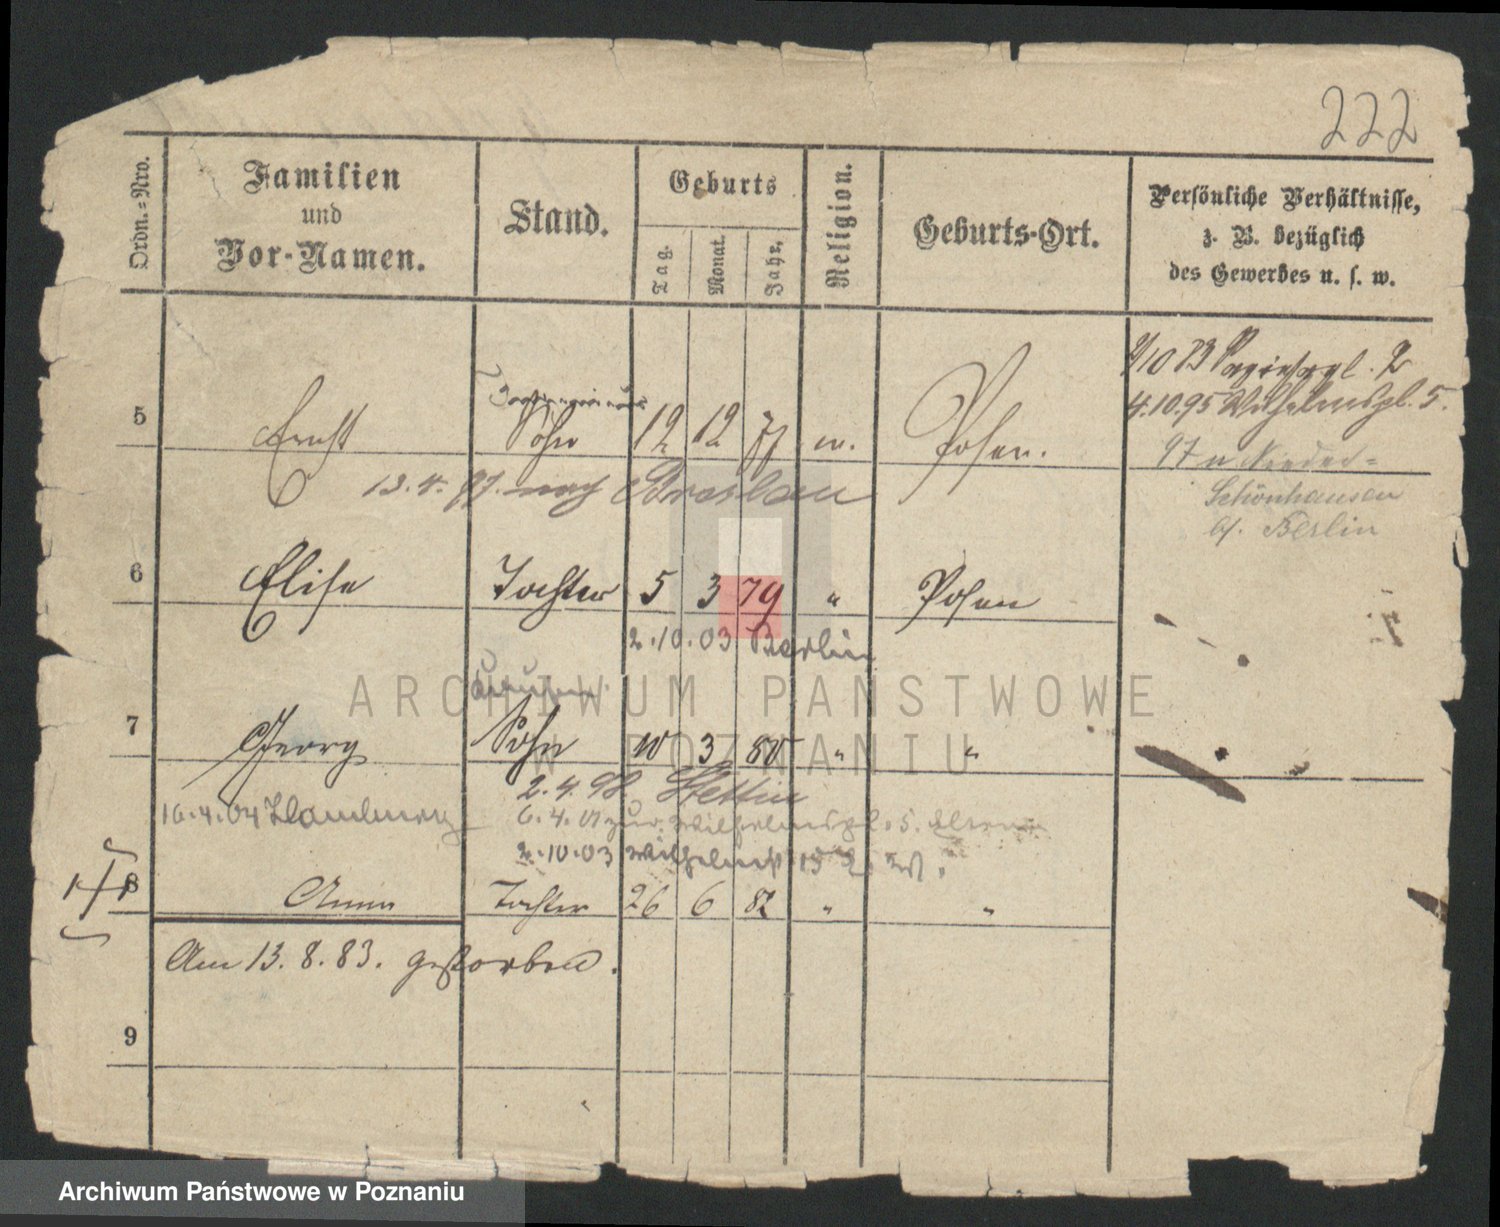 222
Ordn.=Nro.
Familien
und
Vor-Namen.
Stand.
Geburts
Tag.
Monat.
Jahr.
Religion.
Geburts-Ort.
Persönliche Verhältnisse,
z. B. bezüglich
des Gewerbes u. s. w.
4.10.95 Wilhelmspl. 5.
5
Ernst
Sohn
12
12
77
m.
Posen.
97 n Nieder=
Schönhausen
b/. Berlin
nach Breslau
6
Elise
Tochter
5
3
79
"
Posen
2.10.03 Berlin
ARCHIWUM PAŃSTWOWE
W POZNANIU
7
Georg
Sohn
10
3
80
"
"
2.4.98. Stettin
16.4.04
6.4.01 zur. Wilhelmspl. 5.
2.10.03 Wilhelmst
8
Anna
Tochter
26
6
82
"
"
Am 13.8.83. gestorben.
9
Archiwum Państwowe w Poznaniu